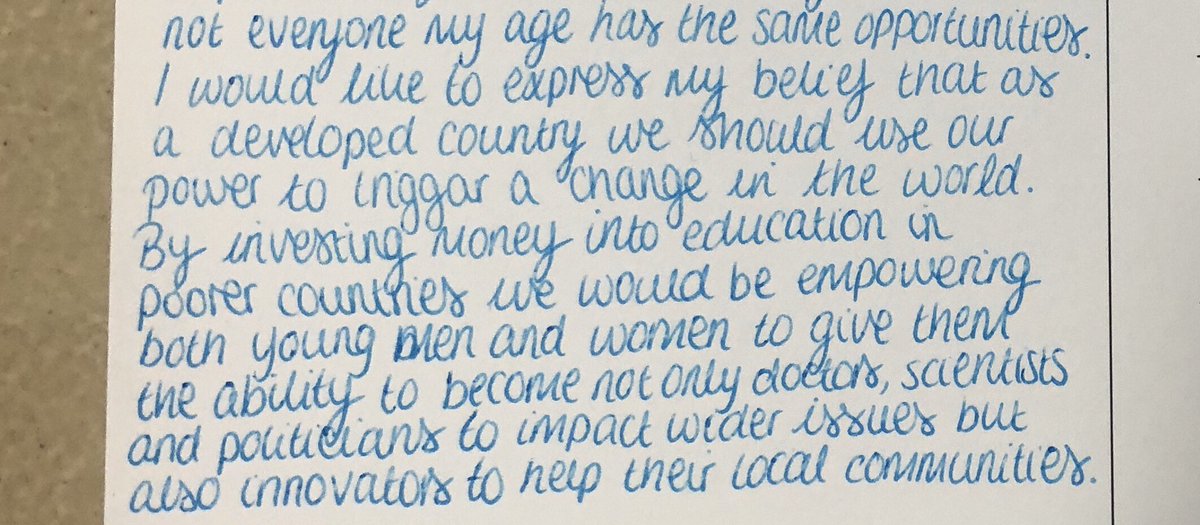 not everyone my age has the same opportunities.
I would like to express my belief that as
a developed country we should use our
power to triggar a change in the world.
By investing money into education in
poorer countries we would be empowering
both young men and women to give them
the ability to become not only doctors, scientists
and politicians to impact wider issues but
also innovators to help their local communities.